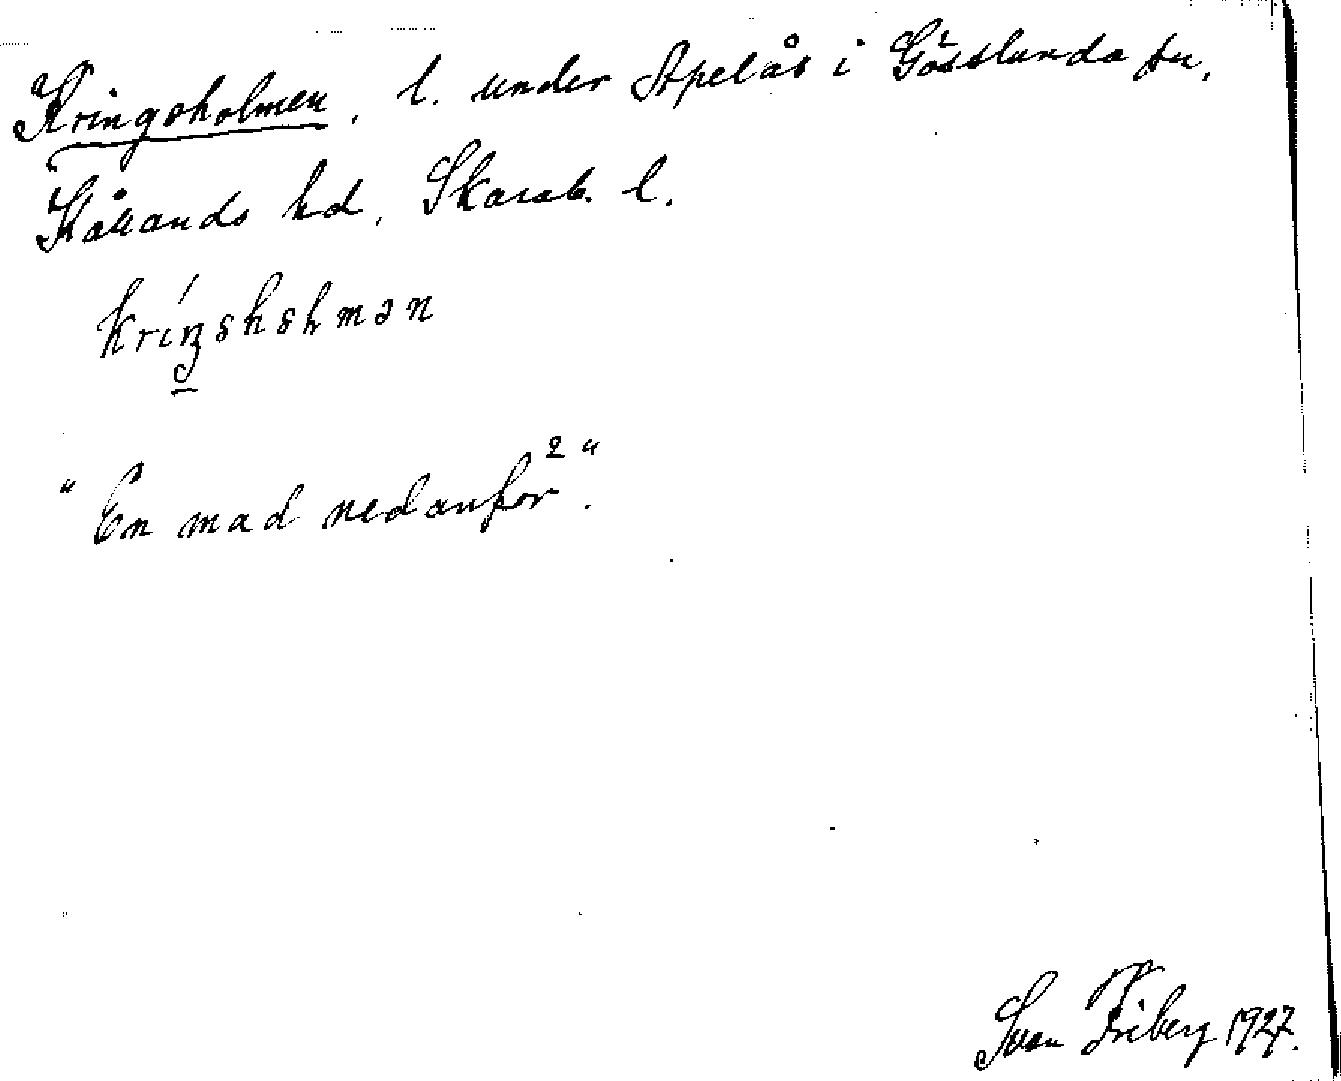 Kringsholmen, l. under Apelås i Gösslunda sn,
Kållands hd, Skarab. l.
"En mad nedanför".
Sven Friberg 1927.